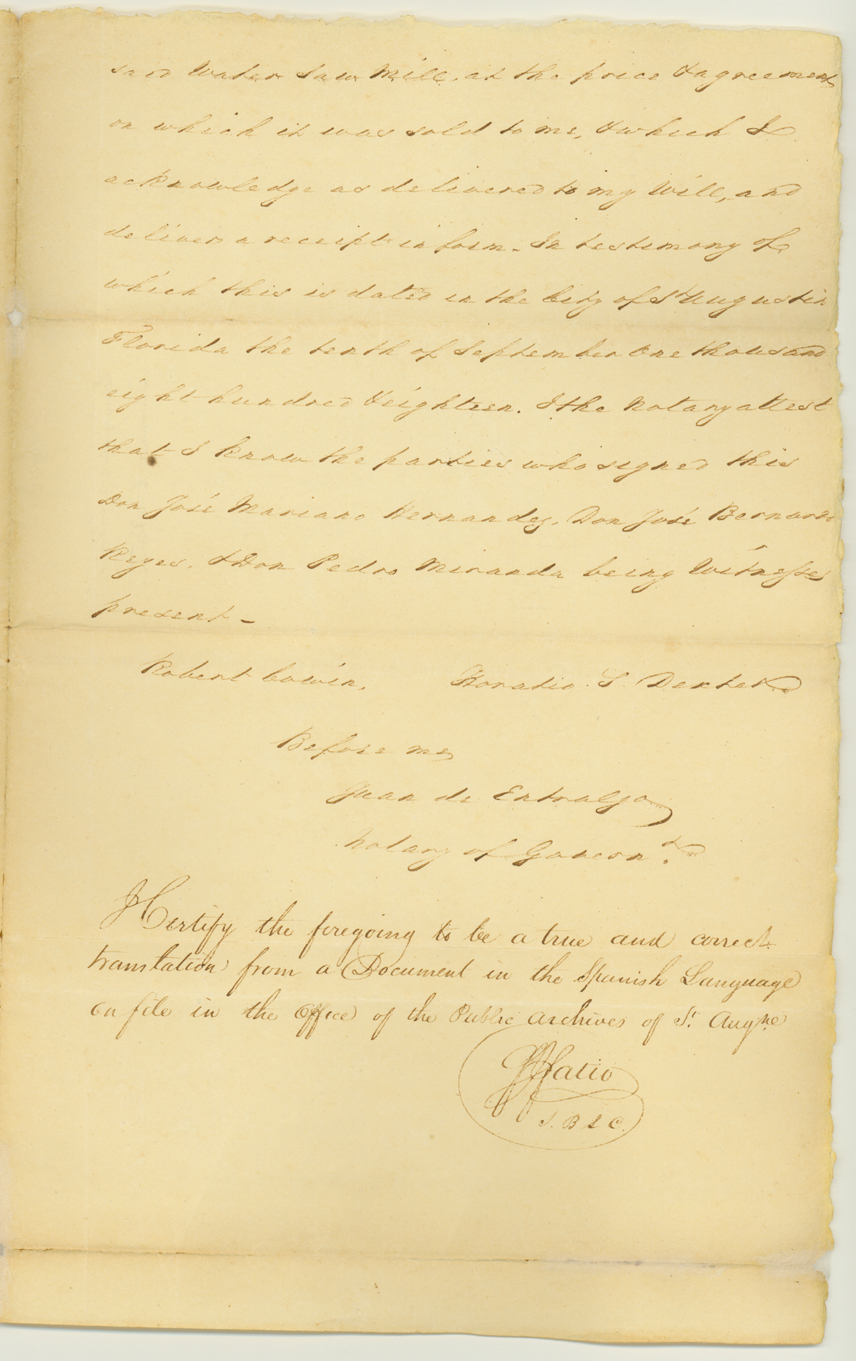 said Water Saw Mill, at the price & agreement
on which it was sold to me, & which I
acknowledge as delivered to my Will, and
deliver a receipt in form. In testimony of
which this is dated in the City of St Augustin
Florida the tenth of September One thousand
eight hundred & eighteen. I the Notary attest
that I know the parties who signed this
Don José Mariano Hernandez, Don José Bernardo
Reyes, & Don Pedro Miranda being Witnesses
present –
Robert Cowin, Horatio S Dexter
Before me,
Juan de Entralgo
Notary of Governt.
I Certify the foregoing to be a true and correct
translation from a Document in the Spanish Language
on file in the Office of the Public Archives of St. Augne
Fatio
S. B L C.